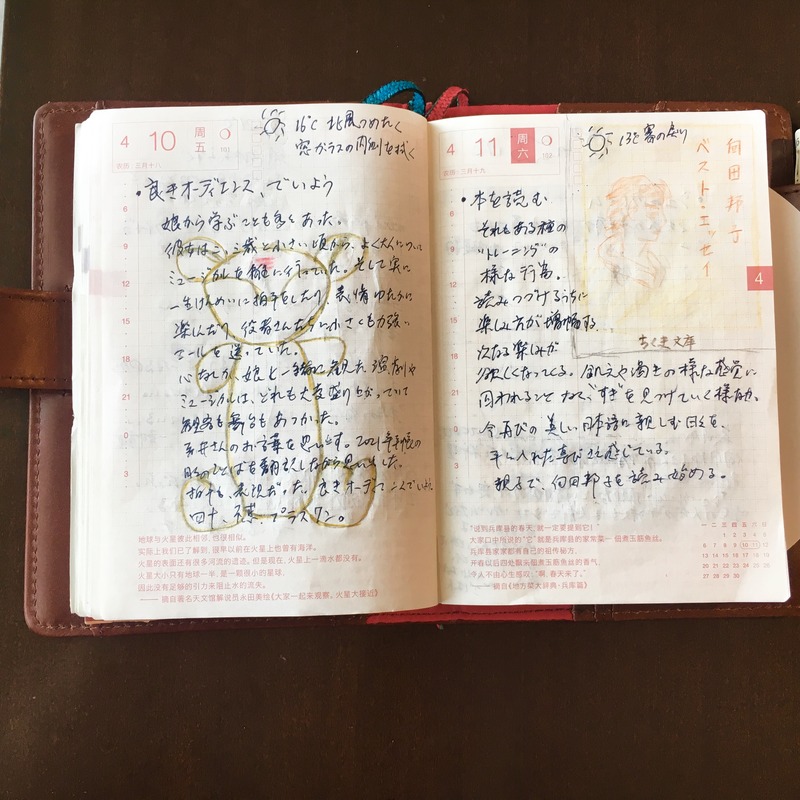 4 10 周五
农历·三月十八
101
16℃ 北風つめたく
窓ガラスの内側を拭く
・良きオーディエンス、でいよう
娘から学ぶことも多くあった。
彼女は二、三歳と小さい頃から、よく大人について
ミュージカルを観に行っていた。そして実に
一生けんめいに拍手をしたり、表情ゆたかに
楽しんだり、役者さんたちに小さくも力強い
エールを送っていた。
心なしか娘と一緒に観た演劇や
ミュージカルは、どれも大変盛り上がっていて
観客も舞台もあつかった。
さんのお言葉を思い出す。2021年手帳の
のことばを翻訳しながら思い出した。
拍手も、表現だった。良きオーディエンスでいよう
四十、プラスワン。
地球与火星彼此相邻,也很相似。
实际上我们已了解到,很早以前在火星上也曾有海洋。
火星的表面还有很多河流的遗迹。但是现在,火星上一滴水都没有。
火星大小只有地球一半,是一颗很小的星球,
因此没有足够的引力来阻止水的流失。
—— 摘自著名天文馆解说员永田美绘《大家一起来观察,火星大接近》
4 11 周六
农历·三月十九
102
13℃ 寒の戻り
向田邦子
ベスト・エッセイ
ちくま文庫
4
・本を読む
それもある種の
"トレーニング"の
様な行為。
読みつづけるうちに
楽しみ方が増幅する
次なる楽しみが
欲しくなってくる。飢えや渇きの様な感覚に
囚われることなく"すぎ"を見つけていく様な
今再びの美しい日本語に親しむ日々を、
手に入れた喜びさえ感じている。
親子で、向田邦子を読み始める。
"说到兵库县的春天,就一定要提到它!"
大家口中所说的"它"就是兵库县的家常菜一佃煮玉筋鱼丝。
兵库县家家都有自己的祖传秘方,
开春以后四处飘来佃煮玉筋鱼丝的香气,
令人不由心生感叹:"啊,春天来了。"
—— 摘自《地方菜大辞典·兵库篇》
一 二 三 四 五 六 日
1 2 3 4 5
6 7 8 9 10 11 12
13 14 15 16 17 18 19
20 21 22 23 24 25 26
27 28 29 30